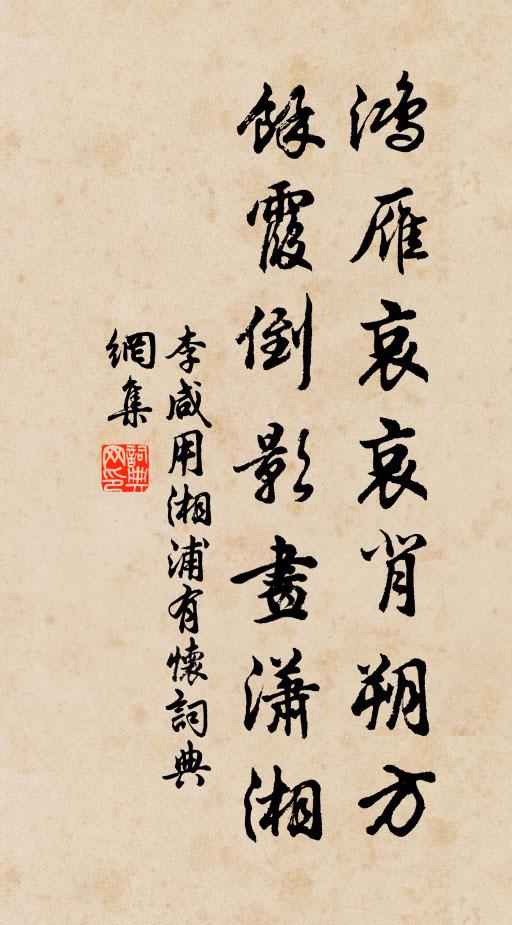 鴻雁哀哀背朔方
餘霞倒影畫瀟湘
李咸用湘浦有懷詞典
網集
詞典網印